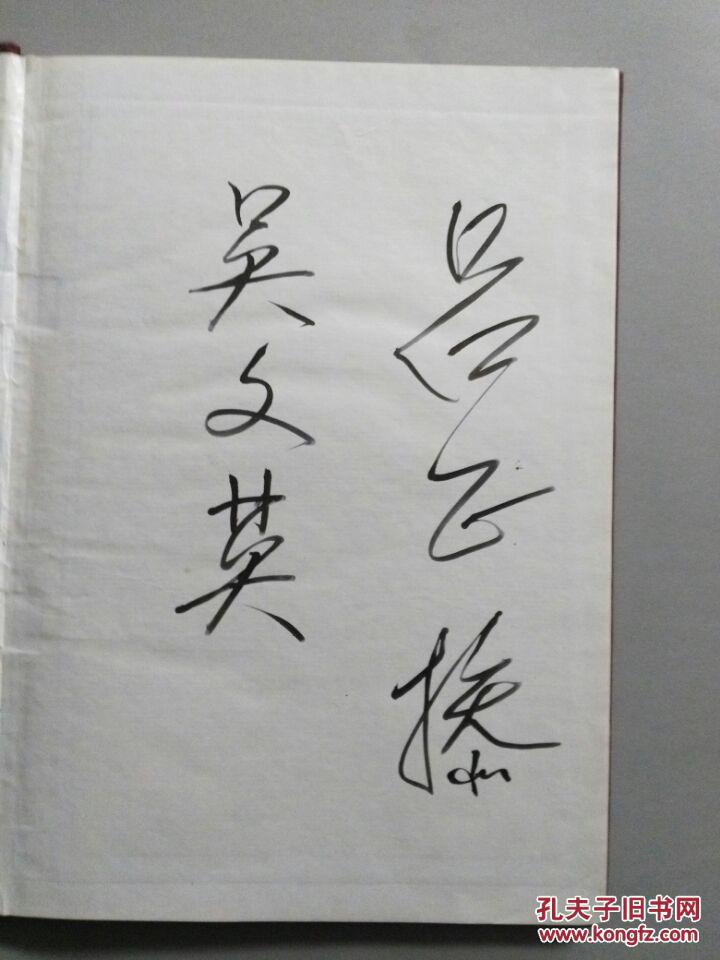 吕正操
吴文英
孔夫子旧书网
www.kongfz.com